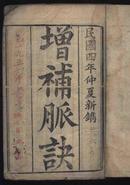 民國四年仲夏新鐫
增補脈訣